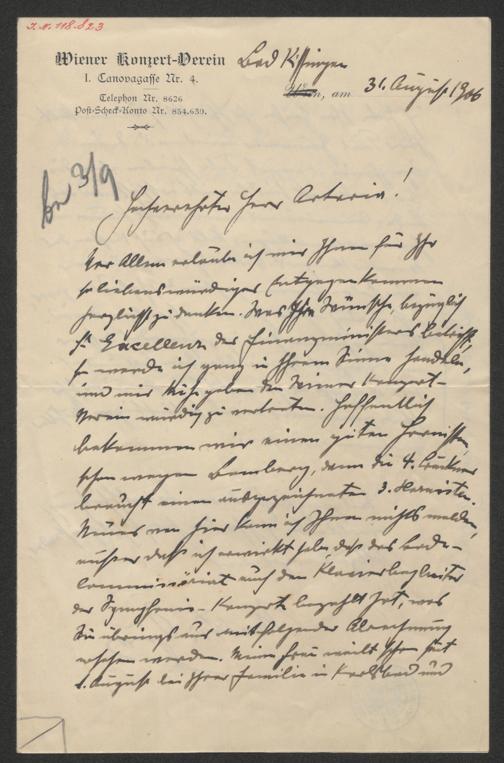 I.N. 118.823
Wiener Konzert-Verein
I. Canovagasse Nr. 4.
Telephon Nr. 8626
Post-Scheck-Konto Nr. 854.639.
Bad Kissingen
Wien, am 31. August 1906
be 3/9
Hochverehrter Herr Artaria!
Vor Allem erlaube ich mir Ihnen für Ihr
so liebenswürdiges Entgegenkommen
herzlichst zu danken. Was Ihre Wünsche, bezüglich
Sr Excellenz des Finanzministers betrifft,
so werde ich ganz in Ihrem Sinne handeln,
und mir Mühe geben den Wiener Konzert-
Verein würdig zu vertreten. Hoffentlich
bekommen wir einen guten Hornisten,
schon wegen Bamberg, denn die 4. Bruckner
braucht einen ausgezeichneten 3. Hornisten.
Neues von hier kann ich Ihnen nichts melden,
außer daß ich erwirkt habe, daß das Bade-
Commissariat auch den Klavierbegleiter
der Symphonie-Konzerte bezahlt hat, was
Sie übrigens aus mitfolgender Abrechnung
ersehen werden. Meine Frau weilt schon seit
1. August bei Ihrer Familie in Karlsbad und